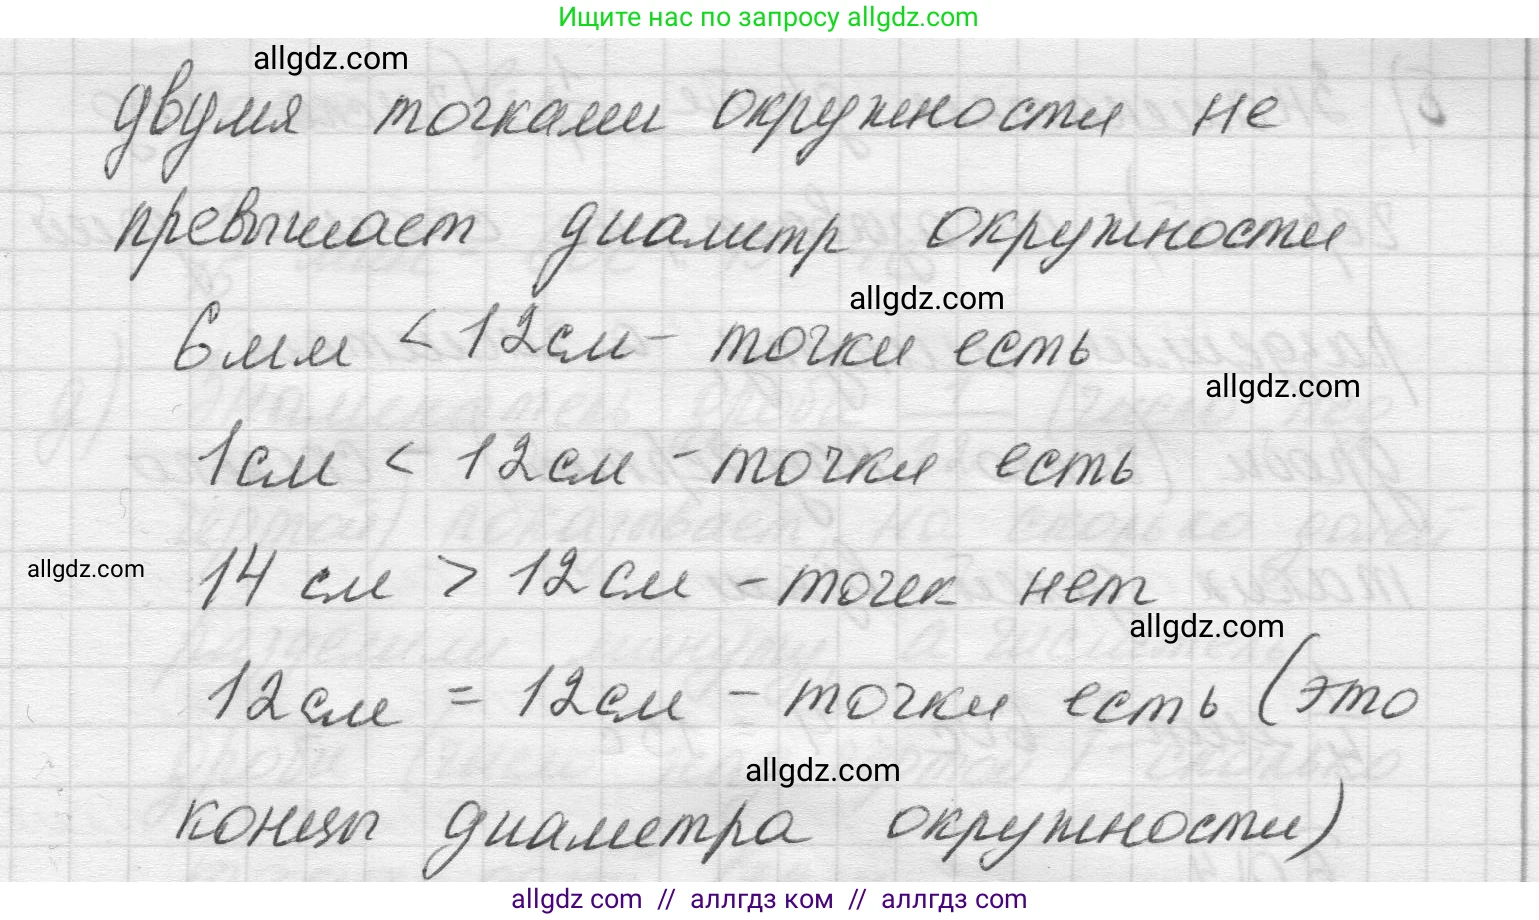 Ищите нас по запросу allgdz.com
allgdz.com
двумя точками окружности не
превышает диаметр окружности
allgdz.com
6мм < 12см - точки есть
allgdz.com
1см < 12см - точки есть
allgdz.com
14 см > 12см - точек нет
allgdz.com
12см = 12см - точки есть (это
allgdz.com
концы диаметра окружности)
allgdz com // аллгдз ком // аллгдз com